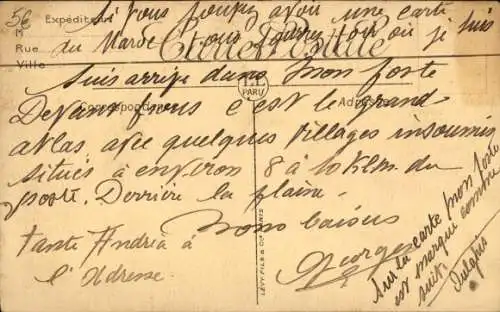 5€
Expéditeur
M
Rue
Ville
Carte Postale
Correspondance
Adresse
PARIS
LÉVY FILS & Cie PARIS
Si vous pouvez avoir une carte
du Maroc vous pourrez voir où je suis
Suis arrivé dans mon poste
Devant nous c'est le grand
atlas avec quelques villages insoumis
situés à environ 8 à 10 Klm. du
poste. Derrière la plaine.
Bons baisers
Georges
Tante Andréa à
l'Adresse
Sur la carte mon poste
est marqué comme
suit